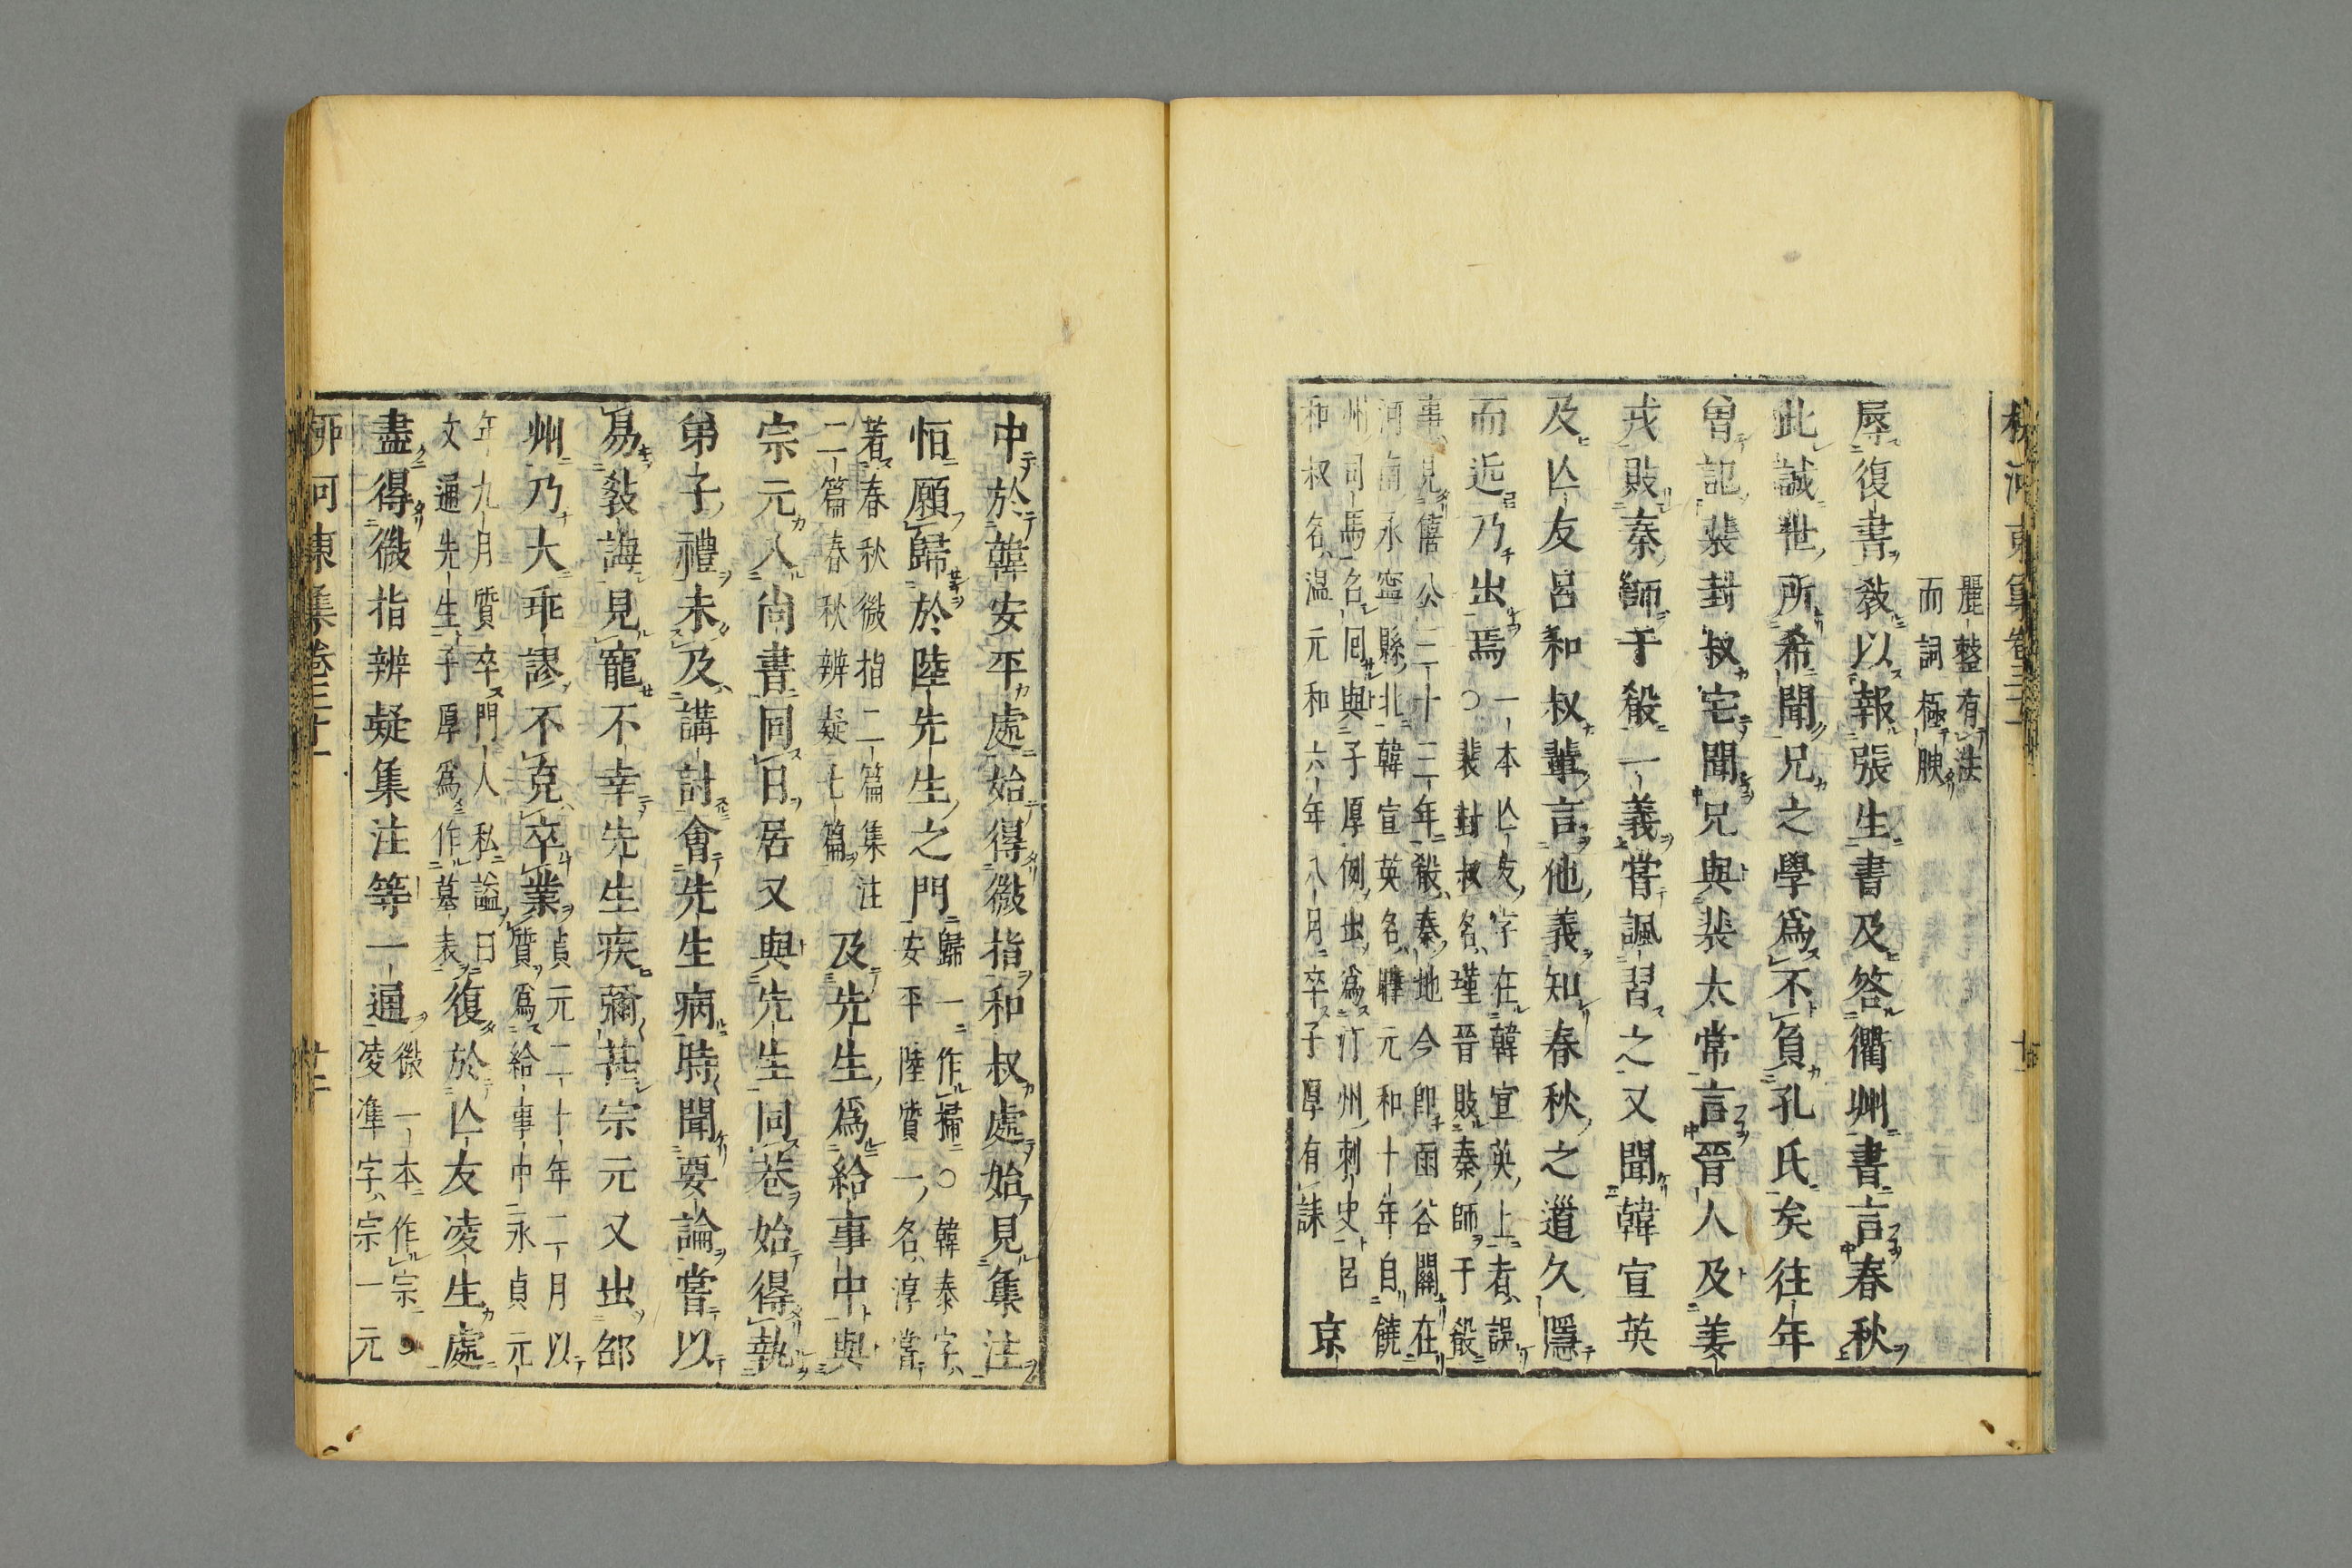 柳河東集卷三十一
麗整有法
而詞極腴
辱復書敎以報張生書及答衢州書言春秋
此誠世所希聞兄之學爲不負孔氏矣往年
曾記裴封叔宅聞兄與裴太常言晉人及姜
戎敗秦師于殽一義嘗諷習之又聞韓宣英
及亾友呂和叔輩言他義知春秋之道久隱
而近乃出焉
一本亾友字在韓宣英上者誤
○裴封叔名瑾晉敗秦師于殽
事見僖公三十三年殽秦地今卽函谷關在
河南永寧縣北韓宣英名曄元和十年自饒
州司馬名囘與子厚例出爲汀州刺史呂
和叔名温元和六年八月卒子厚有誄
京
中於韓安平處始得微指和叔處始見集注
恒願歸於陸先生之門
歸一作掃○韓泰字
安平陸質一名淳嘗
著春秋微指二篇集注
二篇春秋辨疑七篇
及先生爲給事中與
宗元入尙書同日居又與先生同巷始得執
弟子禮未及講討會先生病時聞要論嘗以
易敎誨見寵不幸先生疾彌甚宗元又出邵
州乃大乖謬不克卒業
貞元二十年二月以
質爲給事中永貞元
年九月質卒門人私諡曰
文通先生子厚爲作墓表
復於亾友凌生處
盡得微指辨疑集注等一通
微一本作宗○
凌準字宗一元
柳河東集卷三十一